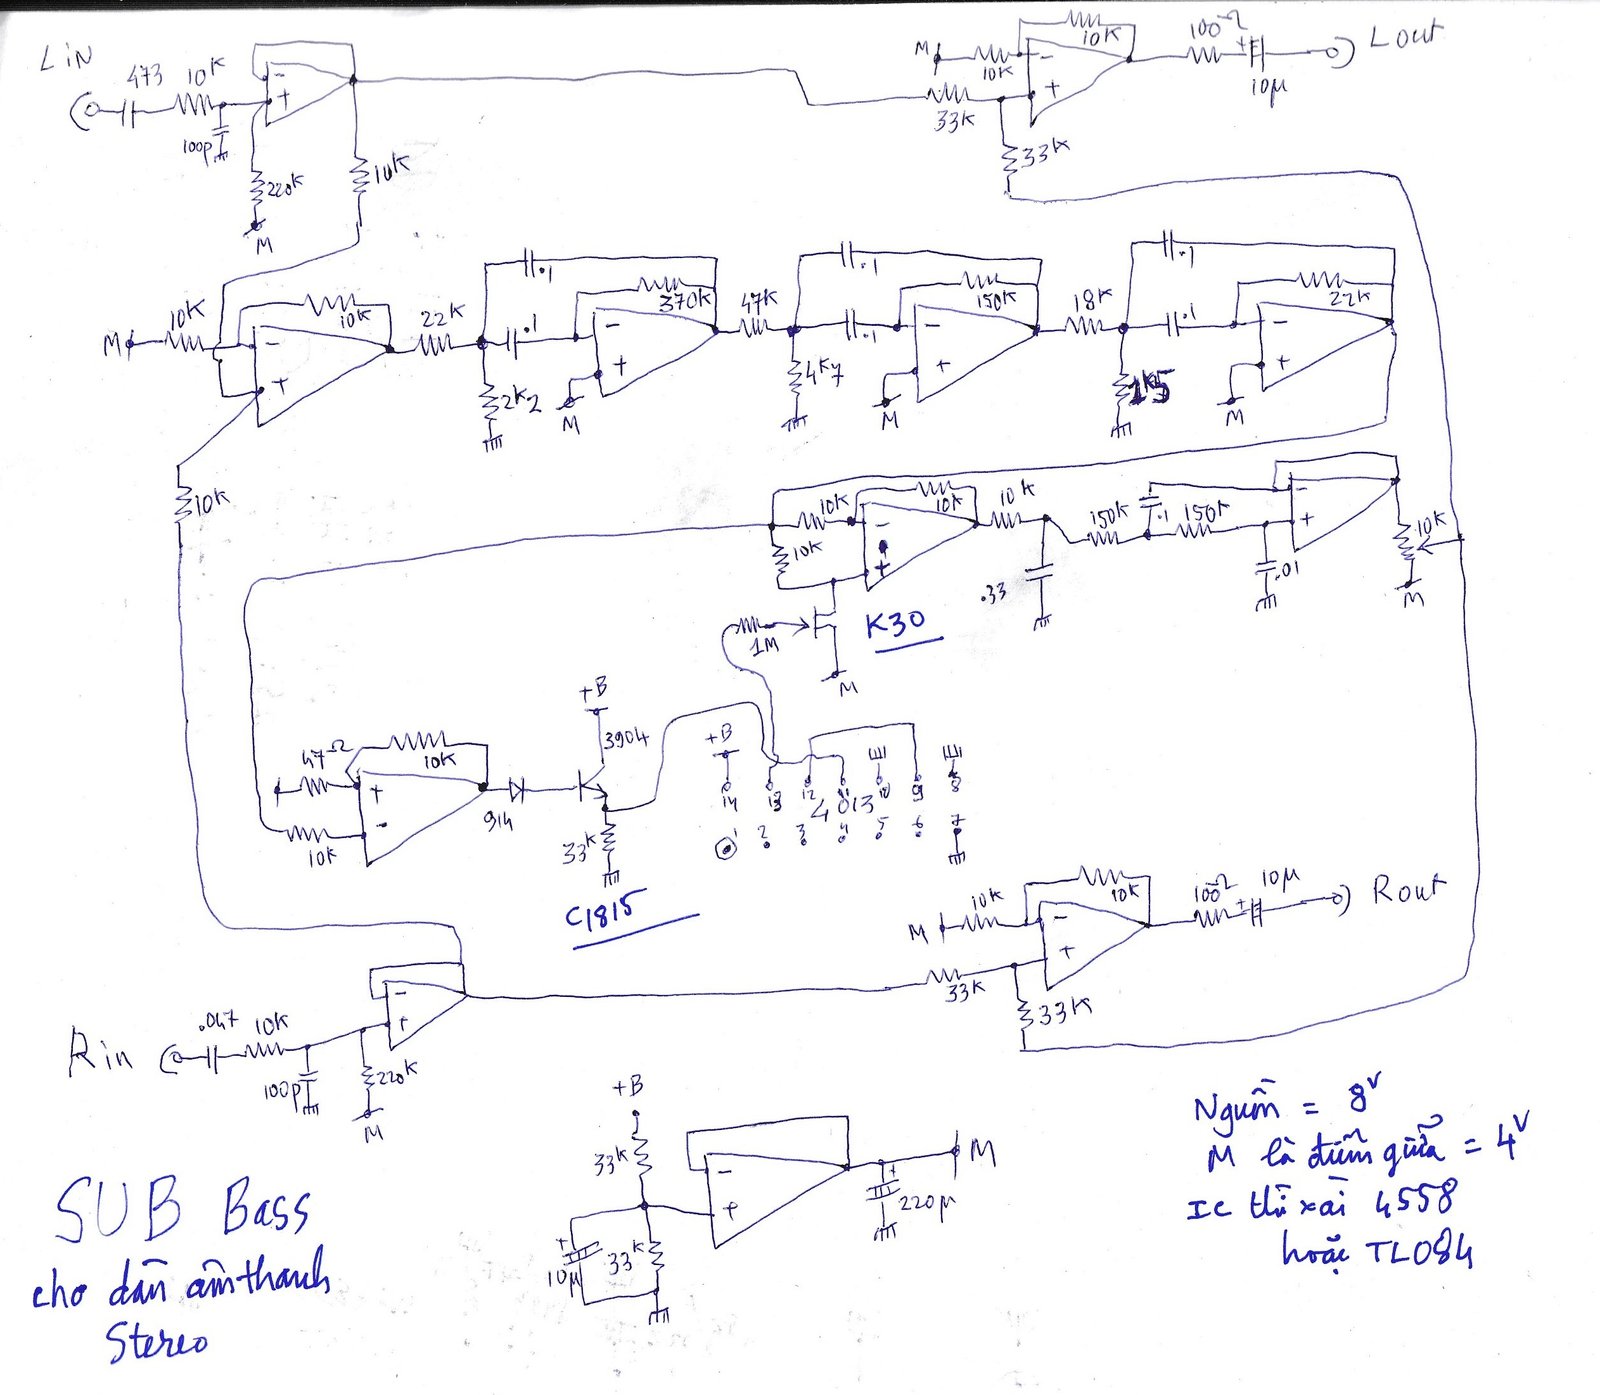 L iN
473 10K
100p
220K
M
10K
M
10K
10K
33K
33K
100Ω
+
10µ
Lout
M
10K
10K
22K
.1
.1
370K
2K2
M
47K
.1
.1
150K
4K7
M
18K
.1
.1
22K
1K5
M
10K
10K
10K
10K
10K
.33
150K
.1
150K
.01
10K
M
1M
K30
M
47Ω
10K
10K
914
+B
3904
33K
C1815
+B
14 13 12 11 10 9 8
4013
1 2 3 4 5 6 7
M
10K
10K
33K
33K
100Ω
+
10µ
Rout
R in
.047 10K
100p
220K
M
+B
33K
33K
+
10µ
+
220µ
M
SUB Bass
cho dàn âm thanh
Stereo
Nguồn = 8V
M là điểm giữa = 4V
IC thì xài 4558
hoặc TL084